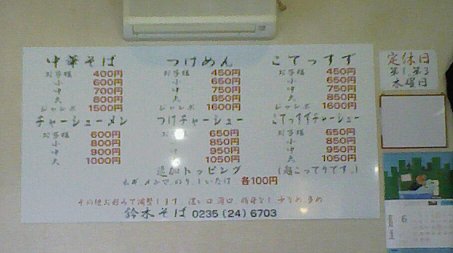 中華そば つけめん こてっすず
お子様 400円 お子様 450円 お子様 450円
小 600円 小 650円 小 650円
中 700円 中 750円 中 750円
大 800円 大 850円 大 850円
ジャンボ 1500円 ジャンボ 1600円 ジャンボ 1600円
チャーシューメン つけチャーシュー こてっすずチャーシュー
お子様 600円 お子様 650円 お子様 650円
小 800円 小 850円 小 850円
中 900円 中 950円 中 950円
大 1000円 大 1050円 大 1050円
追加トッピング (超こってりです。)
ネギ、メンマ、のり、しいたけ 各100円
その他お好みで調整します
鈴木そば 0235(24)6703
定休日
第1、第3
水曜日
6